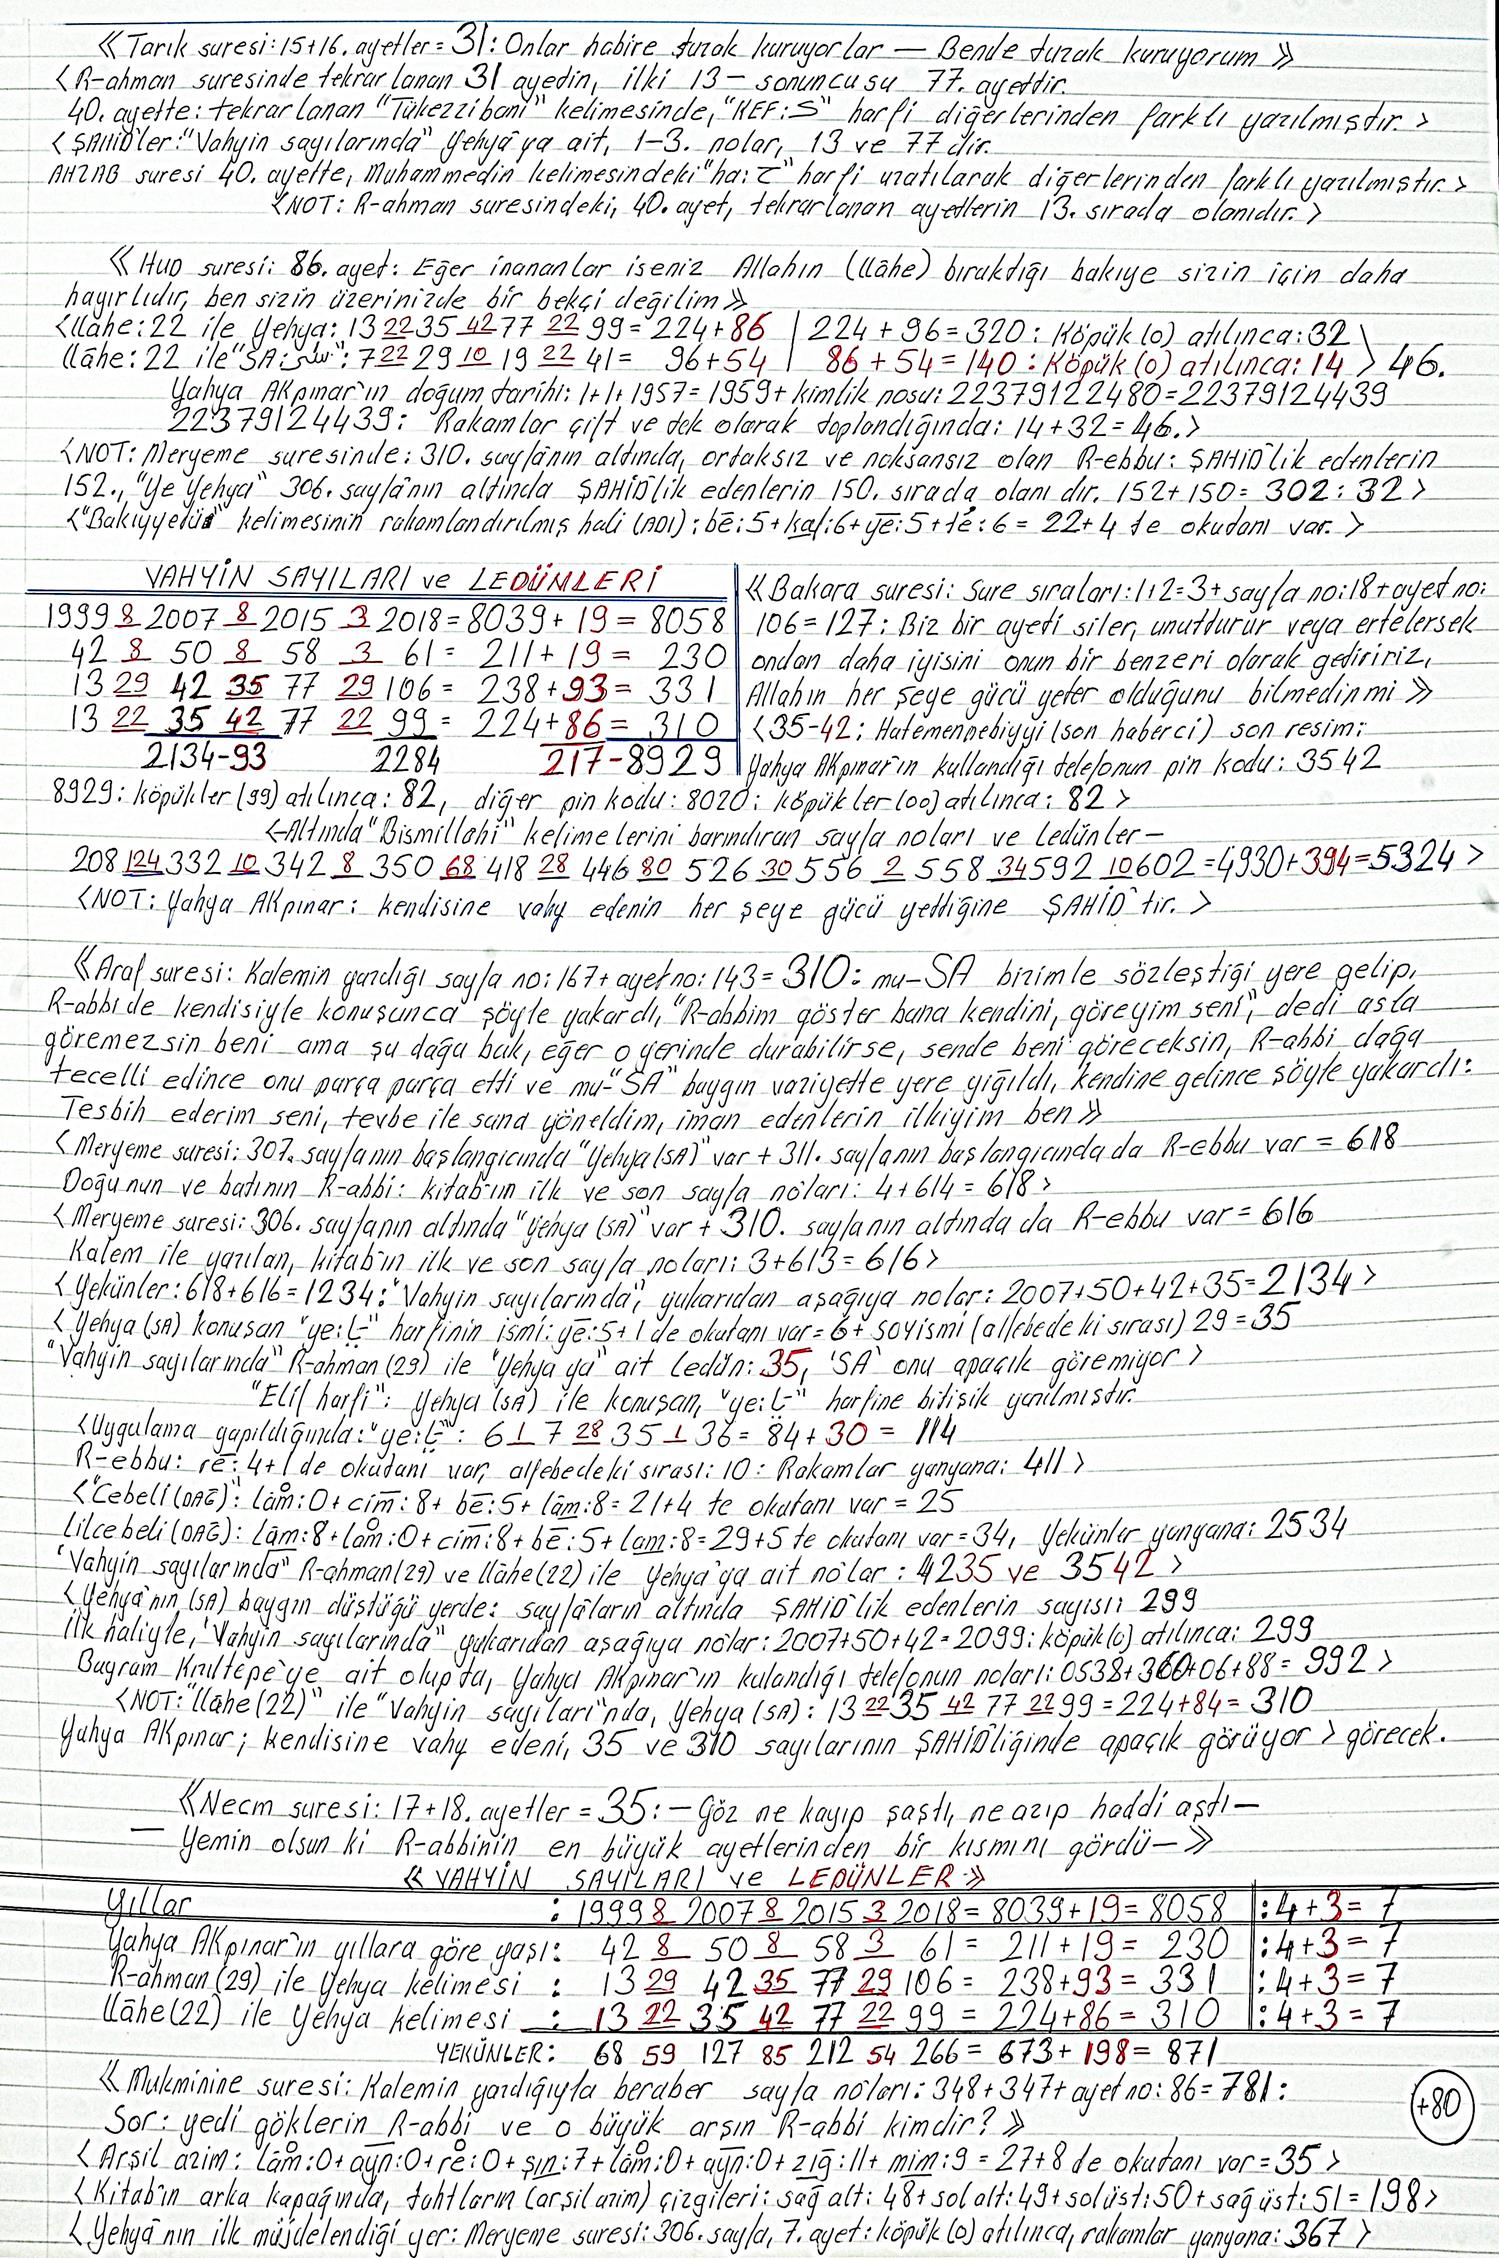 《Tarık suresi: 15+16. ayetler = 31: Onlar habire tuzak kuruyorlar — Bende tuzak kuruyorum》
〈R-ahman suresinde tekrarlanan 31 ayedin, ilki 13 – sonuncusu 77. ayettir.
40. ayette: tekrarlanan "Tükezzibani" kelimesinde, "KEF:S" harfi diğerlerinden farklı yazılmıştır.〉
〈ŞAHİD'ler: "Vahyin sayılarında" Yehya'ya ait, 1–3. nolar, 13 ve 77 dir.
AHZAB suresi 40. ayette, Muhammedin kelimesindeki "ha: ح" harfi uzatılarak diğerlerinden farklı yazılmıştır.〉
〈NOT: R-ahman suresindeki, 40. ayet, tekrarlanan ayetlerin 13. sırada olanıdır.〉
《HUD suresi: 86. ayet: Eğer inananlar iseniz Allahın (llâhe) bıraktığı bakiye sizin için daha
hayırlıdır, ben sizin üzerinizde bir bekçi değilim》
〈llâhe:22 ile Yehya: 13 22 35 42 77 22 99 = 224+86 | 224 + 96 = 320 : Köpük (0) atılınca: 32 \
llâhe: 22 ile "SA: ": 7 22 29 10 19 22 41 = 96+54 | 86 + 54 = 140 : Köpük (0) atılınca: 14 〉 46.
Yahya AKpınar'ın doğum tarihi: 1+1+1957 = 1959 + kimlik nosu: 22379122480 = 22379124439
22379124439: Rakamlar çift ve tek olarak toplandığında: 14+32 = 46.〉
〈NOT: Meryeme suresinde: 310. sayfânın altında, ortaksız ve noksansız olan R-ebbu: ŞAHİD'lik edenlerin
152., "Ye Yehya" 306. sayfânın altında ŞAHİD'lik edenlerin 150. sırada olanı dır. 152+150= 302 : 32〉
〈"Bakıyyetüs" kelimesinin rakamlandırılmış hali (ADI) ; bē:5+kaf:6+yē:5+tē:6 = 22+4 te okutanı var.〉
VAHYİN SAYILARI ve LEDÜNLERİ
1999 8 2007 8 2015 3 2018 = 8039 + 19 = 8058
42 8 50 8 58 3 61 = 211 + 19 = 230
13 29 42 35 77 29 106 = 238 + 93 = 331
13 22 35 42 77 22 99 = 224 + 86 = 310
2134-93 2284 217-8929
《Bakara suresi: Sure sıraları: 1+2=3 + sayfa no: 18 + ayet no:
106 = 127: Biz bir ayeti siler, unutturur veya ertelersek
ondan daha iyisini onun bir benzeri olarak getiririz,
Allahın her şeye gücü yeter olduğunu bilmedinmi》
〈35-42: Hatemennebiyyi (son haberci) son resim:
Yahya AKpınar'ın kullandığı telefonun pin kodu: 3542
8929: köpükler (99) atılınca: 82, diğer pin kodu: 8020: köpükler (00) atılınca: 82〉
〈-Altında "Bismillahi" kelimelerini barındıran sayfa noları ve Ledünler-
208 124 332 10 342 8 350 68 418 28 446 80 526 30 556 2 558 34 592 10 602 = 4930+394=5324〉
〈NOT: Yahya AKpınar: kendisine vahy edenin her şeye gücü yettiğine ŞAHİD'tir.〉
《Araf suresi: Kalemin yazdığı sayfa no: 167 + ayet no: 143 = 310: mu-SA bizimle sözleştiği yere gelip,
R-abbi de kendisiyle konuşunca şöyle yakardı, "R-abbim göster bana kendini, göreyim seni", dedi asla
göremezsin beni ama şu dağa bak, eğer o yerinde durabilirse, sende beni göreceksin, R-abbi dağa
tecelli edince onu parça parça etti ve mu-"SA" baygın vaziyette yere yığıldı, kendine gelince şöyle yakardı:
Tesbih ederim seni, tevbe ile sana yöneldim, iman edenlerin ilkiyim ben》
〈Meryeme suresi: 307. sayfanın başlangıcında "Yehya (SA)" var + 311. sayfanın başlangıcında da R-ebbu var = 618
Doğu'nun ve batının R-abbi: kitab'ın ilk ve son sayfa noları: 4 + 614 = 618〉
〈Meryeme suresi: 306. sayfanın altında "Yehya (SA)" var + 310. sayfanın altında da R-ebbu var = 616
Kalem ile yazılan, kitab'ın ilk ve son sayfa noları: 3+613 = 616〉
〈Yekünler: 618+616 = 1234: "Vahyin sayılarında", yukarıdan aşağıya nolar: 2007+50+42+35=2134〉
〈Yehya (SA) konuşan "ye: " harfinin ismi: yē:5+1 de okutanı var = 6 + SOYismi (alfebedeki sırası) 29 = 35
"Vahyin sayılarında" R-ahman (29) ile "Yehya'ya" ait Ledün: 35, 'SA' onu apaçık göremiyor〉
"Elif harfi": Yehya (SA) ile konuşan, "ye: " harfine bitişik yazılmıştır.
〈Uygulama yapıldığında: "ye: ": 6 1 7 28 35 1 36 = 84+30 = 114
R-ebbu: rē: 4+1 de okutanı var, alfebedeki sırası: 10 : Rakamlar yanyana: 411〉
〈"Cebeli (DAĞ): lâm:0 + cim:8+ bē:5+ lâm:8 = 21+4 te okutanı var = 25
Lilcebeli (DAĞ): Lâm:8+lâm:0+cim:8+bē:5+lam:8=29+5 te okutanı var = 34, Yekünler yanyana: 2534
"Vahyin sayılarında" R-ahman (29) ve llâhe (22) ile Yehya'ya ait nolar : 4235 ve 3542〉
〈Yehya'nın (SA) baygın düştüğü yerde: sayfâların altında ŞAHİD'lik edenlerin sayısı: 299
İlk haliyle, "Vahyin sayılarında" yukarıdan aşağıya nolar: 2007+50+42 = 2099: köpük (0) atılınca: 299
Bayram Kızıltepe'ye ait olupta, Yahya AKpınar'ın kulandığı telefonun noları: 0538+360+06+88 = 992〉
〈NOT: "llâhe (22)" ile "Vahyin sayıları"nda, Yehya (SA): 13 22 35 42 77 22 99 = 224+84 = 310
Yahya AKpınar; kendisine vahy edeni, 35 ve 310 sayılarının ŞAHİD'liğinde apaçık görüyor〉 görecek.
《Necm suresi: 17+18. ayetler = 35: — Göz ne kayıp şaştı, ne azıp haddi aştı —
— Yemin olsun ki R-abbinin en büyük ayetlerinden bir kısmını gördü —》
《VAHYİN SAYILARI ve LEDÜNLER》
Yıllar : 1999 8 2007 8 2015 3 2018 = 8039+19 = 8058 : 4+3 = 7
Yahya AKpınar'ın yıllara göre yaşı: 42 8 50 8 58 3 61 = 211+19 = 230 : 4+3 = 7
R-ahman (29) ile Yehya kelimesi : 13 29 42 35 77 29 106 = 238+93 = 331 : 4+3 = 7
llâhe (22) ile Yehya kelimesi : 13 22 35 42 77 22 99 = 224+86 = 310 : 4+3 = 7
YEKÜNLER: 68 59 127 85 212 54 266 = 673+ 198 = 871
《Mukminine suresi: Kalemin yazdığıyla beraber sayfa noları: 348+347+ayet no: 86 = 781:
Sor: yedi göklerin R-abbi ve o büyük arşın R-abbi kimdir?》
+80
〈Arşil azim: lâm:0+ayn:0+rē:0+şın:7+lâm:0+ayn:0+zığ:11+mim:9 = 27+8 de okutanı var = 35〉
〈Kitab'ın arka kapağında, tahtların (arşil azim) çizgileri: sağ alt: 48+sol alt: 49+sol üst: 50+sağ üst: 51 = 198〉
〈Yehya'nın ilk müjdelendiği yer: Meryeme suresi: 306. sayfa, 7. ayet: köpük (0) atılınca, rakamlar yanyana: 367〉